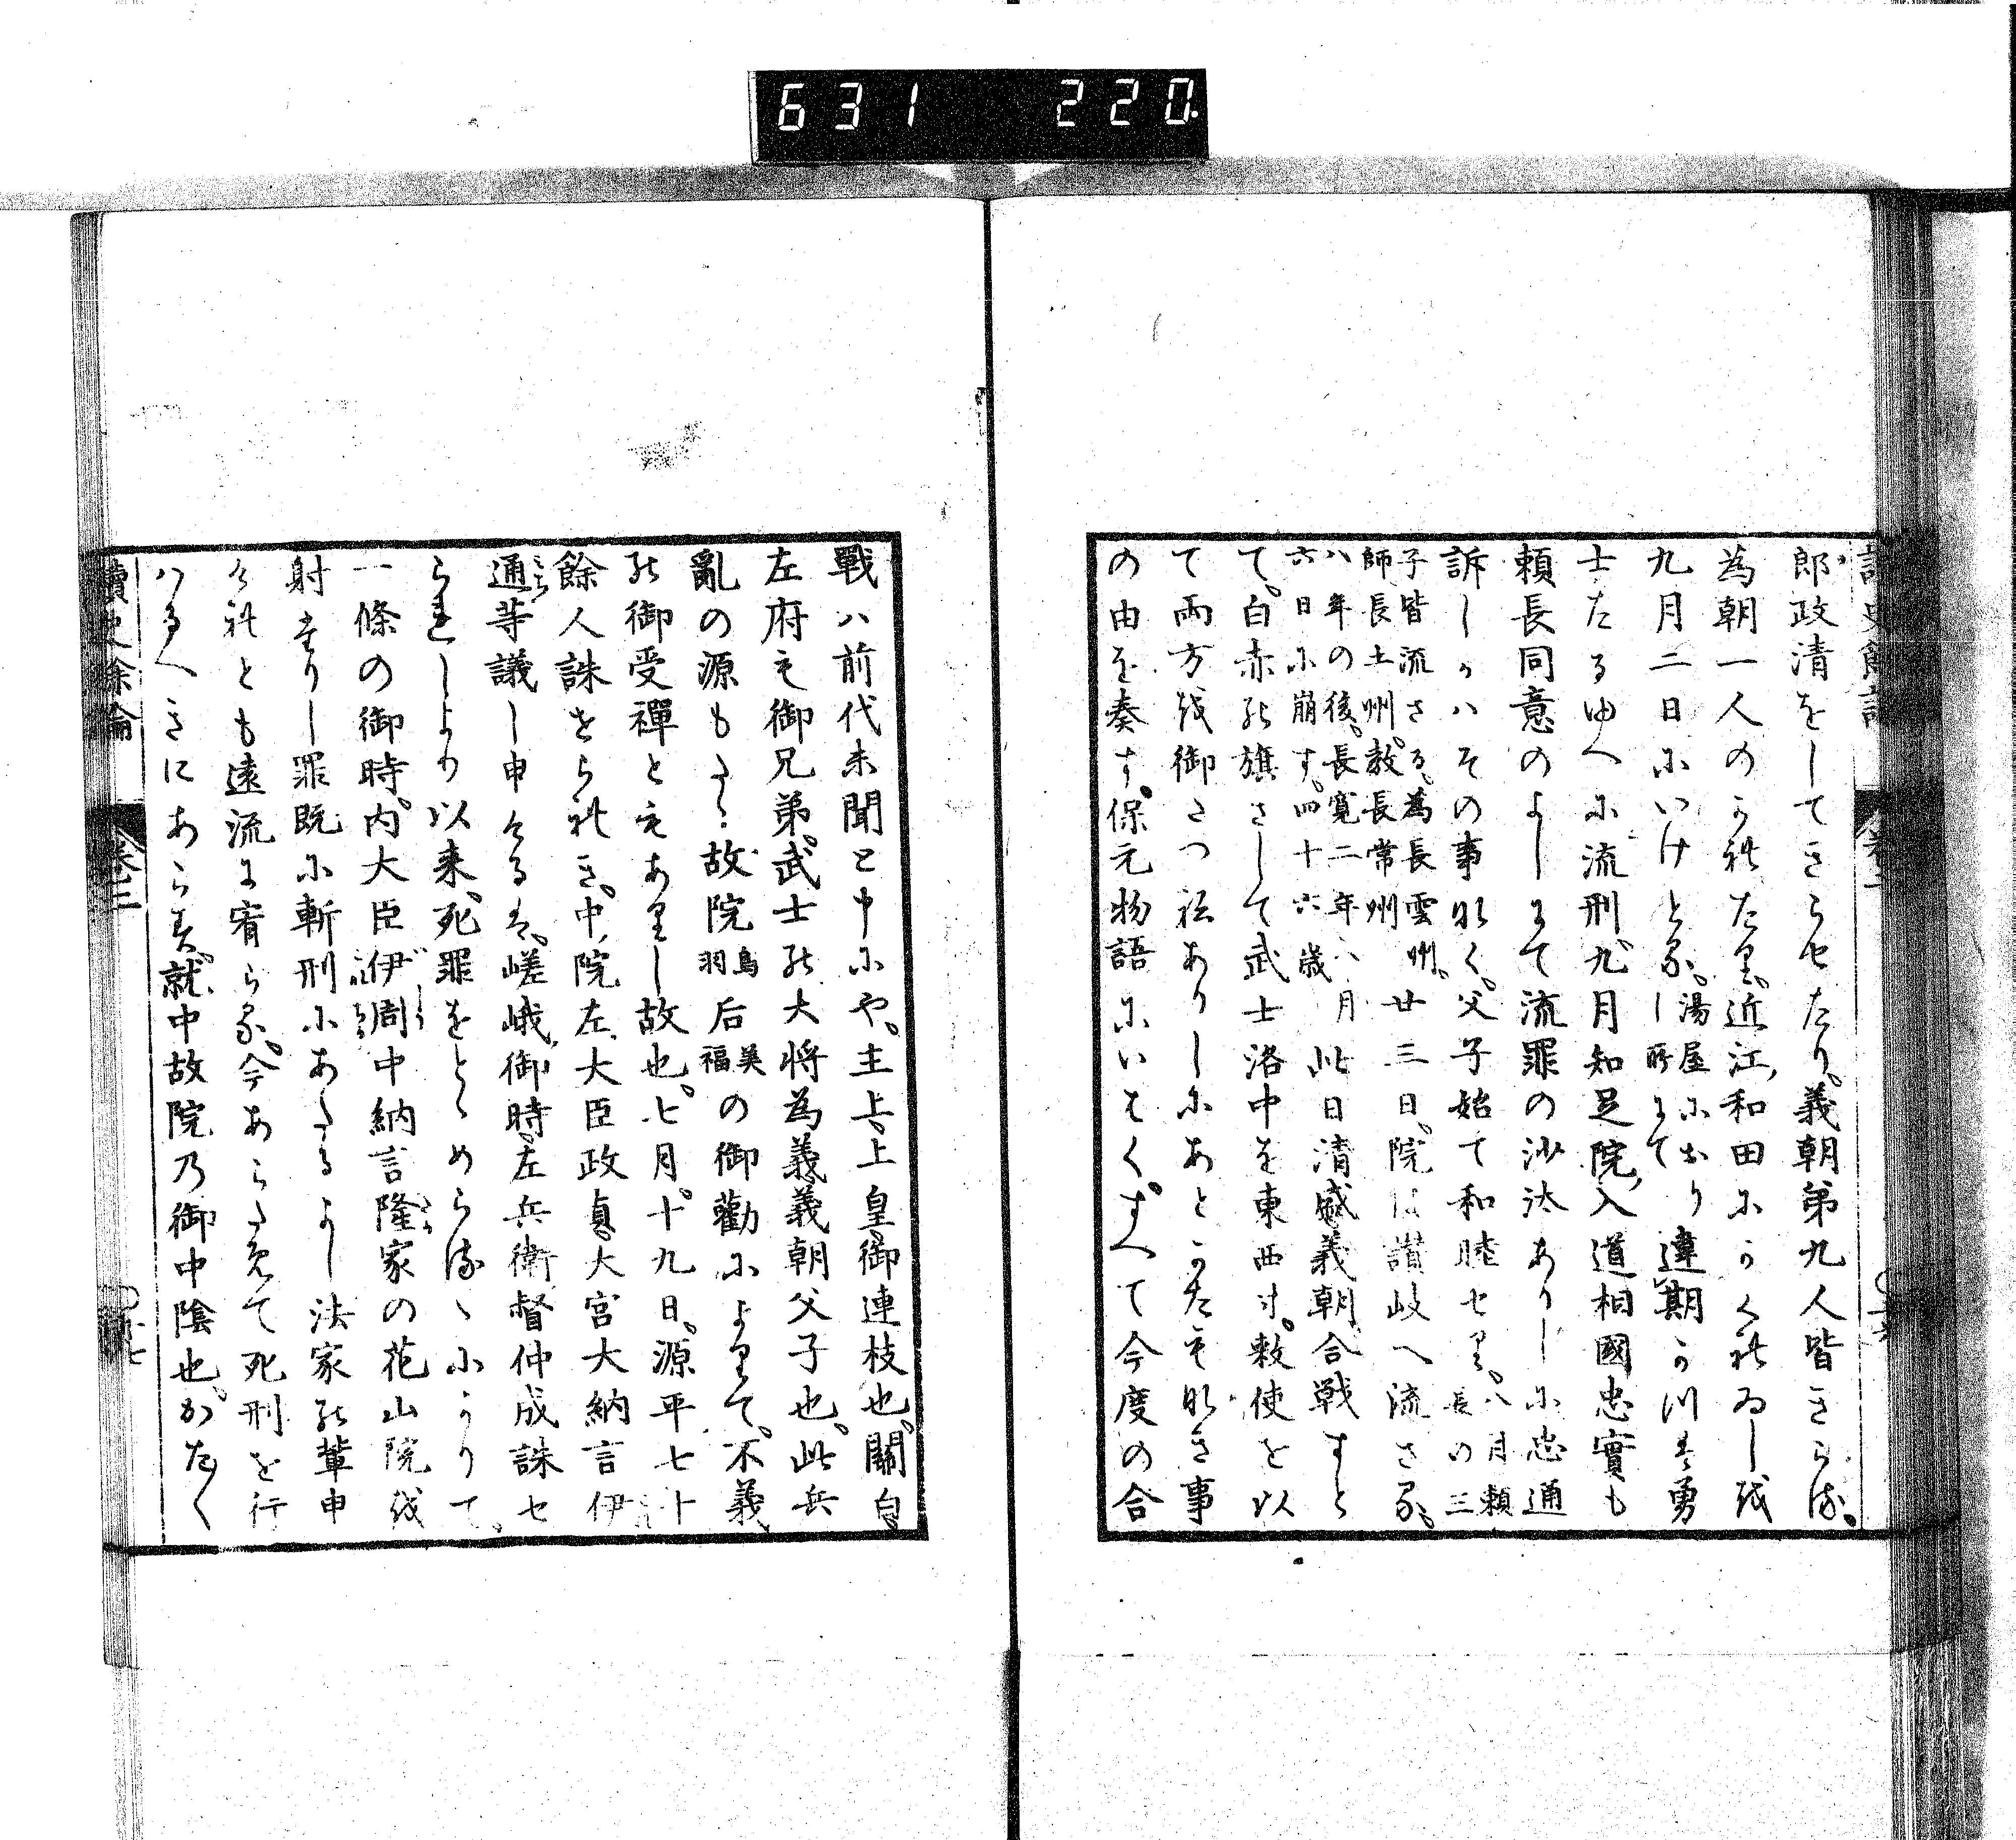 631 220
郎政清をしてきらせたり。義朝弟九人皆きらる。
為朝一人のかれたり。近江、和田にかくれゐしを
九月二日にいけとる。湯屋におりし所にて違期かつは勇
士たるゆへに流刑。九月知足院、入道相國忠實も
頼長同意のよしにて流罪の沙汰ありしに忠通
訴しかハその事なく。父子始て和睦せり。八月頼長の三
子皆流さる。為長雲州。師長土州。教長常州 廿三日。院は讃岐へ流さる。
八年の後。長寛二年八月六日に崩す。四十六歳 此日清盛義朝合戦すと
て。白赤の旗さして武士洛中を東西す。敕使を以
て両方を御さつねありしにあとかたもなき事
の由を奏す。保元物語にいはく。すへて今度の合
戰ハ前代未聞と申にや。主上。上皇。御連枝也。關白。
左府も御兄弟。武士の大将為義義朝父子也。此兵
亂の源もたゝ故院鳥羽后美福の御勸によりて。不義
の御受禪ともありし故也。七月。十九日。源平七十
餘人誅せられき。中院左大臣政貞。大宮大納言伊
通等議し申けるは。嵯峨御時。左兵衛督仲成誅せ
られしより以来。死罪をとゝめらるゝにかりて。
一條の御時。内大臣伊周中納言隆家の花山院を
射奉りし罪既に斬刑にあたるよし法家の輩申
けれとも遠流に宥らる。今あらためて死刑を行
ハるへきにあらす。就中故院乃御中陰也。かたく
讀史餘論 卷二